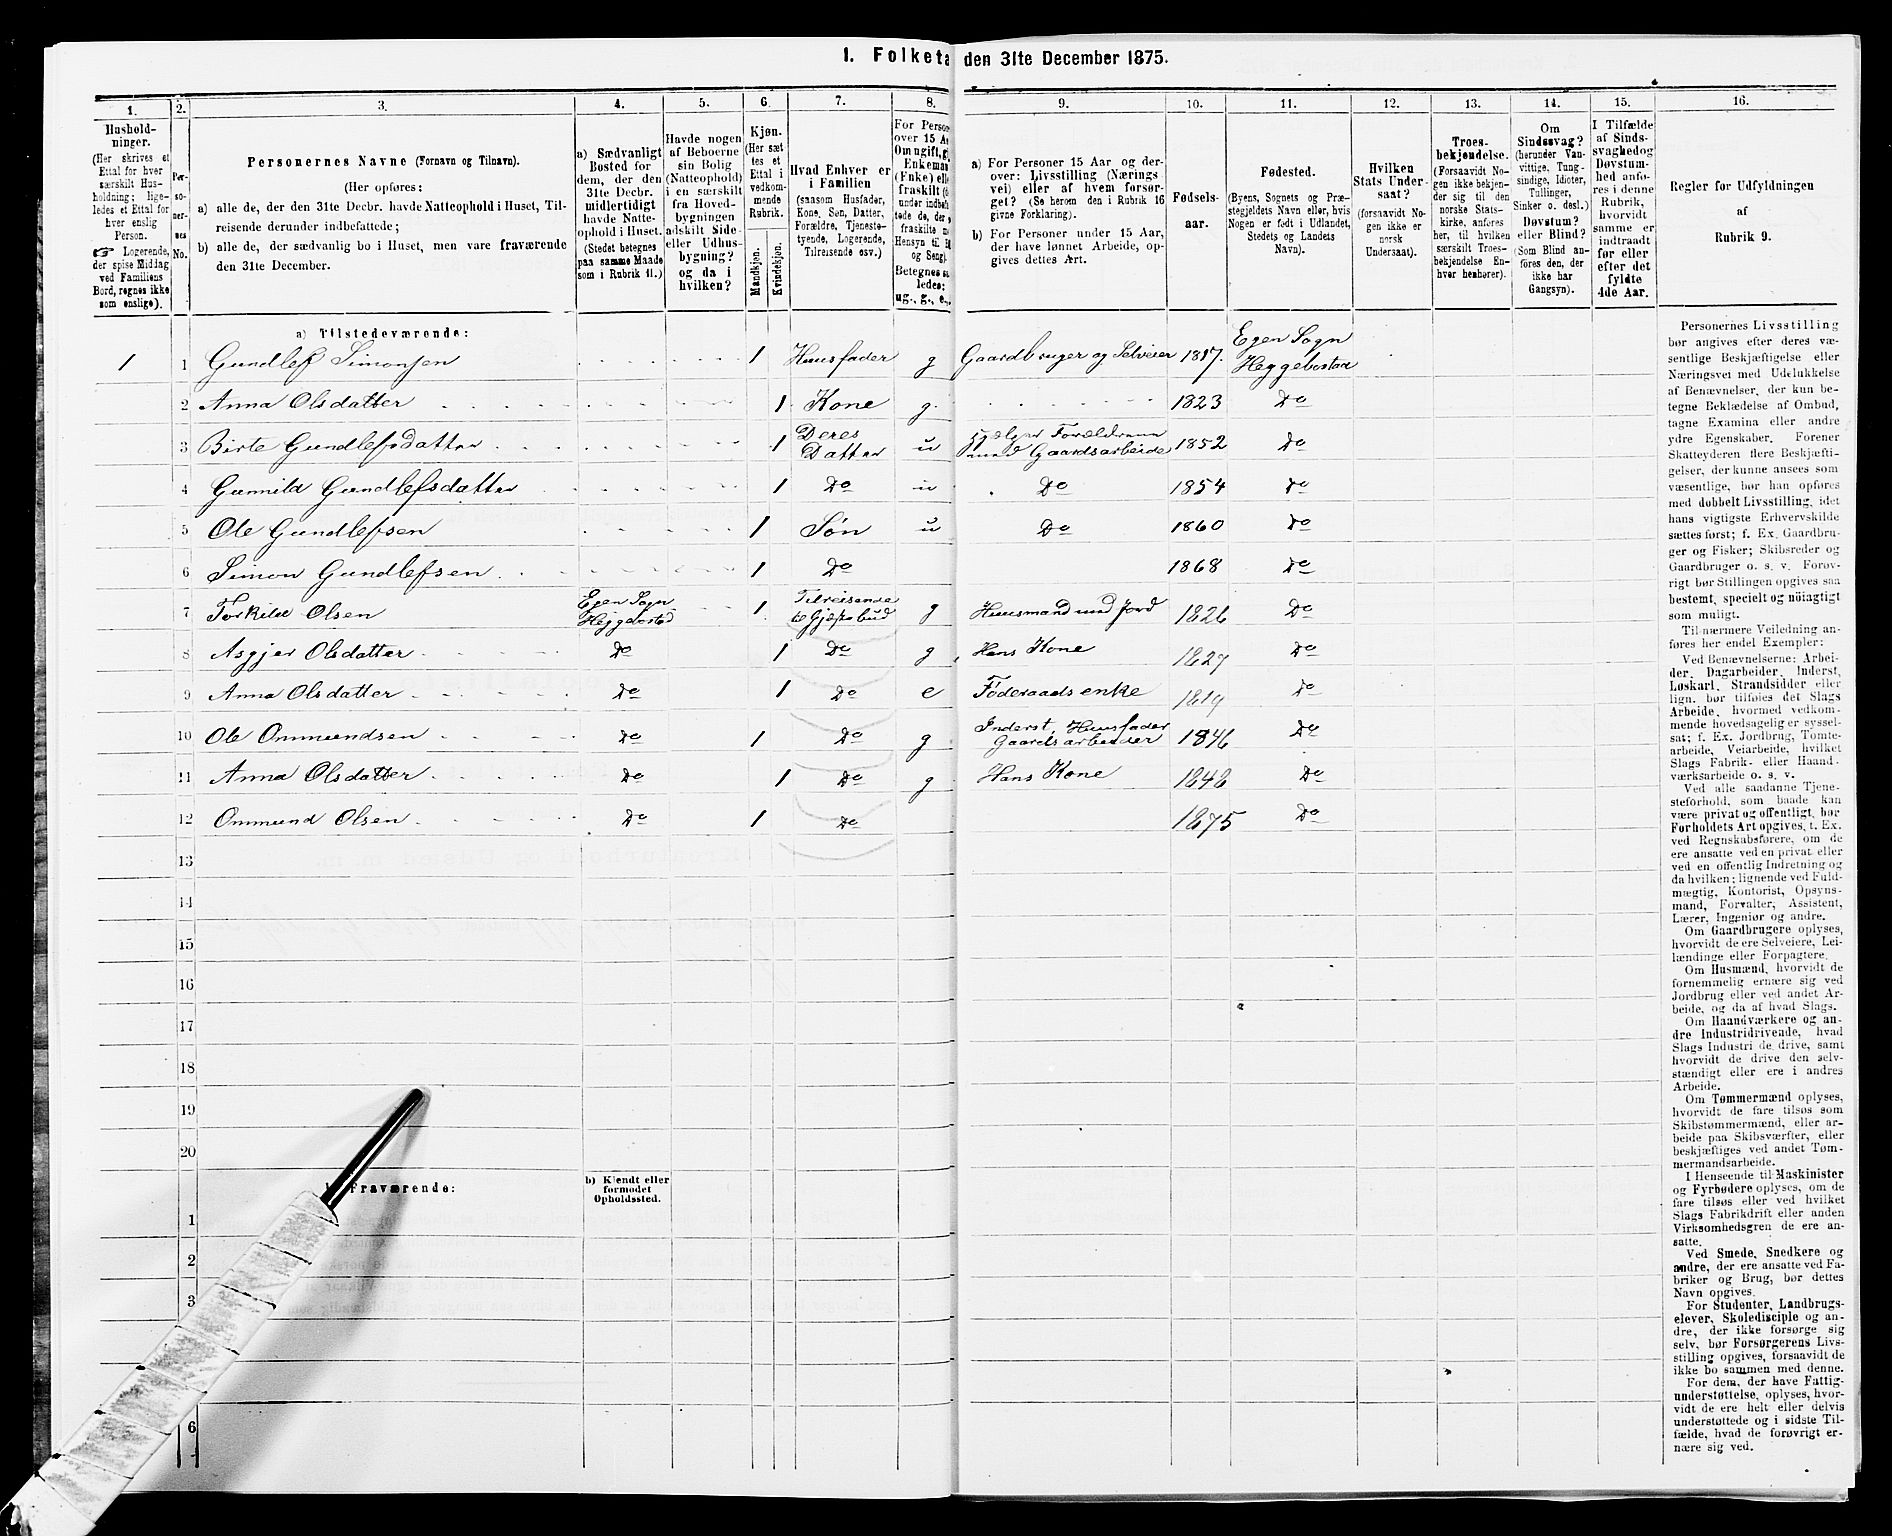 I. Folketæ den 31te December 1875.
1. 2. 3. 4. 5. 6. 7. 8. 9. 10. 11. 12. 13. 14. 15. 16.
Hushold-
ninger.
(Her skrives et
Ettal for hver
særskilt Hus-
holdning; lige-
ledes et Ettal for
hver enslig
Person.
☞ Logerende,
der spise Middag
ved Familiens
Bord, regnes ikke
som enslige).
Per-
so-
ner-
nes
No.
Personernes Navne (Fornavn og Tilnavn).
(Her opføres:
a) alle de, der den 31te Decbr. havde Natteophold i Huset, Til-
reisende derunder indbefattede;
b) alle de, der sædvanlig bo i Huset, men vare fraværende
den 31te December.
a) Sædvanligt
Bosted for
dem, der den
31te Decbr.
midlertidigt
havde Natte-
ophold i Huset.
(Stedet betegnes
paa samme Maade
som i Rubrik 11.)
Havde nogen
af Beboerne
sin Bolig
(Natteophold)
i en særskilt
fra Hoved-
bygningen
adskilt Side-
eller Udhus-
bygning?
og da i
hvilken?
Kjøn.
(Her sæt
tes et
Ettal i
vedkom-
mende
Rubrik.
Mandkjøn.
Kvindekjøn.
Hvad Enhver er
i Familien
(saasom Husfader,
Kone, Søn, Datter,
Forældre, Tjeneste-
tyende, Logerende,
Tilreisende osv.)
For Person
over 15 A
Om ugift, g
Enkeman
(Enke) ell
fraskilt (
under indbef
tede de, der
fraskilte
Hensyn til B
og Seng).
Betegnes s
ledes:
ug., g., e.,
a) For Personer 15 Aar og der-
over: Livsstilling (Nærings
vei) eller af hvem forsør-
get? (Se herom den i Rubrik 16
givne Forklaring).
b) For Personer under 15 Aar,
der have lønnet Arbeide, op-
gives dettes Art.
Fødsels-
aar.
Fødested.
(Byens, Sognets og Præ-
stegjeldets Navn eller, hvis
Nogen er født i Udlandet,
Stedets og Landets
Navn).
Hvilken
Stats Under-
saat?
(forsaavidt No-
gen ikke er
norsk
Undersaat).
Troes-
bekjendelse.
(Forsaavidt No-
gen ikke bekjen-
der sig til den
norske Stats-
kirke, anføres
her, til hvilken
særskilt Troes-
bekjendelse En-
hver henhører).
Om
Sindssvag?
(herunder Van-
vittige, Tung-
sindige, Idioter,
Tullinger,
Sinker o. desl.)
Døvstum?
eller Blind?
(Som Blind an-
føres den, der
ikke har
Gangsyn).
I Tilfælde
af Sinds-
svaghedog
Døvstum-
hed anfø-
res i denne
Rubrik,
hvorvidt
samme er
indtraadt
før eller
efter det
fyldte
4de Aar.
Regler for Udfyldningen
af
Rubrik 9.
a) Tilstedeværende:
1 1 Gundlef Simonsen 1 Huusfader g Gaardbruger og Selveier 1817. Egen Sogn Heggebostad
2 Anna Olsdatter 1 Kone g. 1823 Do
3 Birte Gundlefsdatter 1 Deres Datter u hjælper Forældrene med Gaardsarbeide 1852 Do
4 Gunnild Gundlefsdatter 1 Do u Do 1854 Do
5 Ole Gundlefsen 1 Søn u Do 1860 Do
6 Simon Gundlefsen 1 Do 1868 Do
7 Torkild Olsen Egen Sogn Heggebostad 1 Tilreisende til Gjæstebud g Huusmand med Jord 1826 Do
8 Asgjer Olsdatter Do 1 Do g Hans Kone 1827 Do
9 Anna Olsdatter Do 1 Do e Føderaads enke 1819 Do
10 Ole Ommundsen Do 1 Do g Inderst, Huusfader Gaardsarbeider 1846 Do
11 Anna Olsdatter Do 1 Do g Hans Kone 1848 Do
12 Ommund Olsen Do 1 Do 1875 Do
13
14
15
16
17
18
19
20
Fraværende:
b) Kjendt eller
formodet
Opholdssted.
1
2
3
6
Personernes Livsstilling
bør angives efter deres væ-
sentlige Beskjæftigelse eller
Næringsvei med Udelukkelse
af Benævnelser, der kun be-
tegne Beklædelse af Ombud,
tagne Examina eller andre
ydre Egenskaber. Forener
Skatteyderen flere Beskjæfti-
gelser, der kunne ansees som
væsentlige, bør han opføres
med dobbelt Livsstilling, idet
hans vigtigste Erhvervskilde
sættes først; f. Ex. Gaardbru-
ger og Fisker; Skibsreder og
Gaardbruger o. s. v. Forøv-
rigt bør Stillingen opgives saa
bestemt, specielt og nöiagtigt
som muligt.
Til nærmere Veiledning an-
føres her endel Exempler:
Ved Benævnelserne: Arbei-
der, Dagarbeider, Inderst,
Løskarl, Strandsidder eller
lign. bør tilføies det Slags
Arbeide, hvormed vedkom-
mende hovedsagelig er syssel-
sat; f. Ex. Jordbrug, Tomte-
arbeide, Veiarbeide, hvilket
Slags Fabrik- eller Haand-
værksarbeide o. s. v.
Ved alle saadanne Tjene-
steforhold, som baade kan
være privat og offentligt, bør
Forholdets Art opgives, t. Ex.
ved Regnskabsførere, om de
ere ansatte ved en privat eller
ved en offentlig Indretning og
da hvilken; lignende ved Fuld-
mægtig, Kontorist, Opsyns-
mand, Forvalter, Assistent,
Lærer, Ingeniør og andre.
Om Gaardbrugere oplyses,
hvorvidt de ere Selveiere, Lei-
lændinge eller Forpagtere.
Om Husmænd, hvorvidt de
fornemmelig ernære sig ved
Jordbrug eller ved andet Ar-
beide, og da af hvad Slags.
Om Haandværkere og an-
dre Industridrivende, hvad
Slags Industri de drive, samt
hvorvidt de drive den selv-
stændigt eller ere i andres
Arbeide.
Om Tømmermænd oplyses,
hvorvidt de fare tilsøs som
Skibstømmermænd, eller ar-
beide paa Skibsværfter, eller
beskjæftiges ved andet Tøm-
mermandsarbeide.
I Henseende til Maskinister
og Fyrbødere oplyses, om de
fare tilsøs eller ved hvilket
Slags Fabrikdrift eller anden
Virksomhedsgren de ere an-
satte.
Ved Smede, Snedkere og
andre, der ere ansatte ved Fa-
briker og Brug, bør dettes
Navn opgives.
For Studenter, Landbrugs-
elever, Skoledisciple og an-
dre, der ikke forsørge sig
selv, bør Forsørgerens Livs-
stilling opgives, forsaavidt de
ikke bo sammen med denne.
For dem, der have Fattig-
understøttelse, oplyses, hvor-
vidt de ere helt eller delvis
understøttede og i sidste Til-
fælde, hvad de forøvrigt er-
nære sig ved.